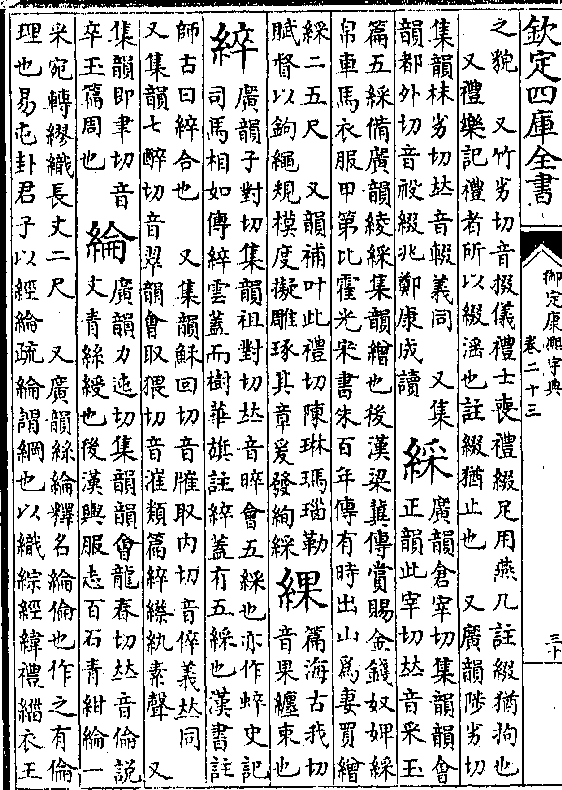 欽定四庫全書
御定康熙字典
卷二十三
三十
之貌　又竹劣切音掇儀禮士喪禮綴足用燕几註綴猶拘也
又禮樂記禮者所以綴淫也註綴猶止也　又廣韻陟劣切
集韻株劣切𠀤音輟義同　又集
韻都外切音祋綴兆鄭康成讀
綵
廣韻倉宰切集韻韻會
正韻此宰切𠀤音采玉
篇五綵備廣韻綾綵集韻繒也後漢梁冀傳賞賜金錢奴婢綵
帛車馬衣服甲第比霍光宋書朱百年傳有時出山爲妻買繒
綵二五尺　又韻補叶此禮切陳琳瑪瑙勒
賦督以鉤繩規模度擬雕琢其章爰發絢綵
綶
篇海古我切
音果纏束也
綷
廣韻子對切集韻祖對切𠀤音晬會五綵也亦作䘹史記
司馬相如傳綷雲蓋而樹華旗註綷蓋有五綵也漢書註
師古曰綷合也　又集韻蘇回切音膗取内切音倅義𠀤同
又集韻七醉切音翠韻會取猥切音漼類篇綷縩紈素聲　又
集韻即聿切音
卒玉篇周也
綸
廣韻力迍切集韻韻會龍春切𠀤音倫說
文青絲綬也後漢輿服志百石青紺綸一
采宛轉繆織長丈二尺　又廣韻絲綸釋名綸倫也作之有倫
理也易屯卦君子以經綸疏綸謂綱也以織綜經緯禮緇衣王